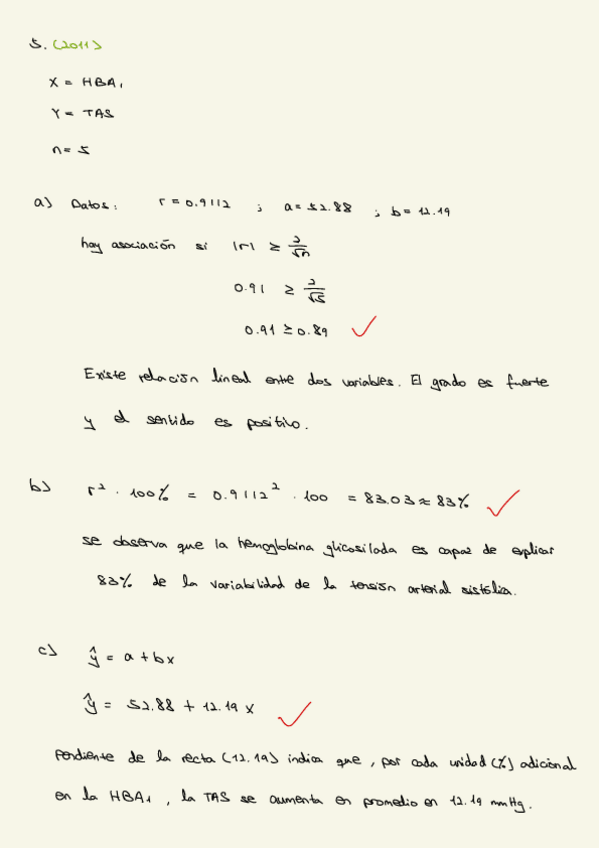 5. (2011)
X = HBA₁
Y = TAS
n = 5
a) Datos: r = 0.9112 ; a = 52.88 ; b = 12.19
hay asociación si |r| ≥ 2/√n
0.91 ≥ 2/√5
0.91 ≥ 0.89
Existe relación lineal entre dos variables. El grado es fuerte
y el sentido es positivo.
b) r² · 100% = 0.9112² · 100 = 83.03 ≈ 83%
se observa que la hemoglobina glicosilada es capaz de explicar
83% de la variabilidad de la tensión arterial sistólica.
c) ŷ = a + bx
ŷ = 52.88 + 12.19 x
pendiente de la recta (12.19) indica que, por cada unidad (%) adicional
en la HBA₁, la TAS se aumenta en promedio en 12.19 mmHg.